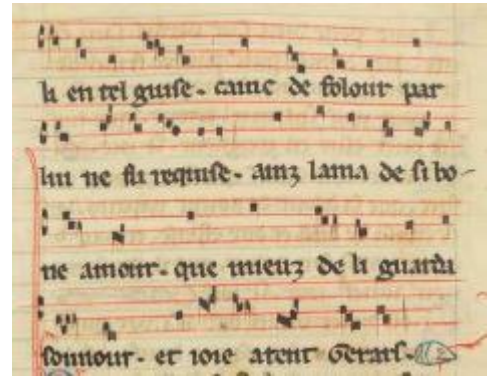 li en tel guise. canc de folour par
lui ne fu requise. ainz lama de si bo-
ne amour. que mieuz de li guarda
sonnour. et ioie atent Gerars.